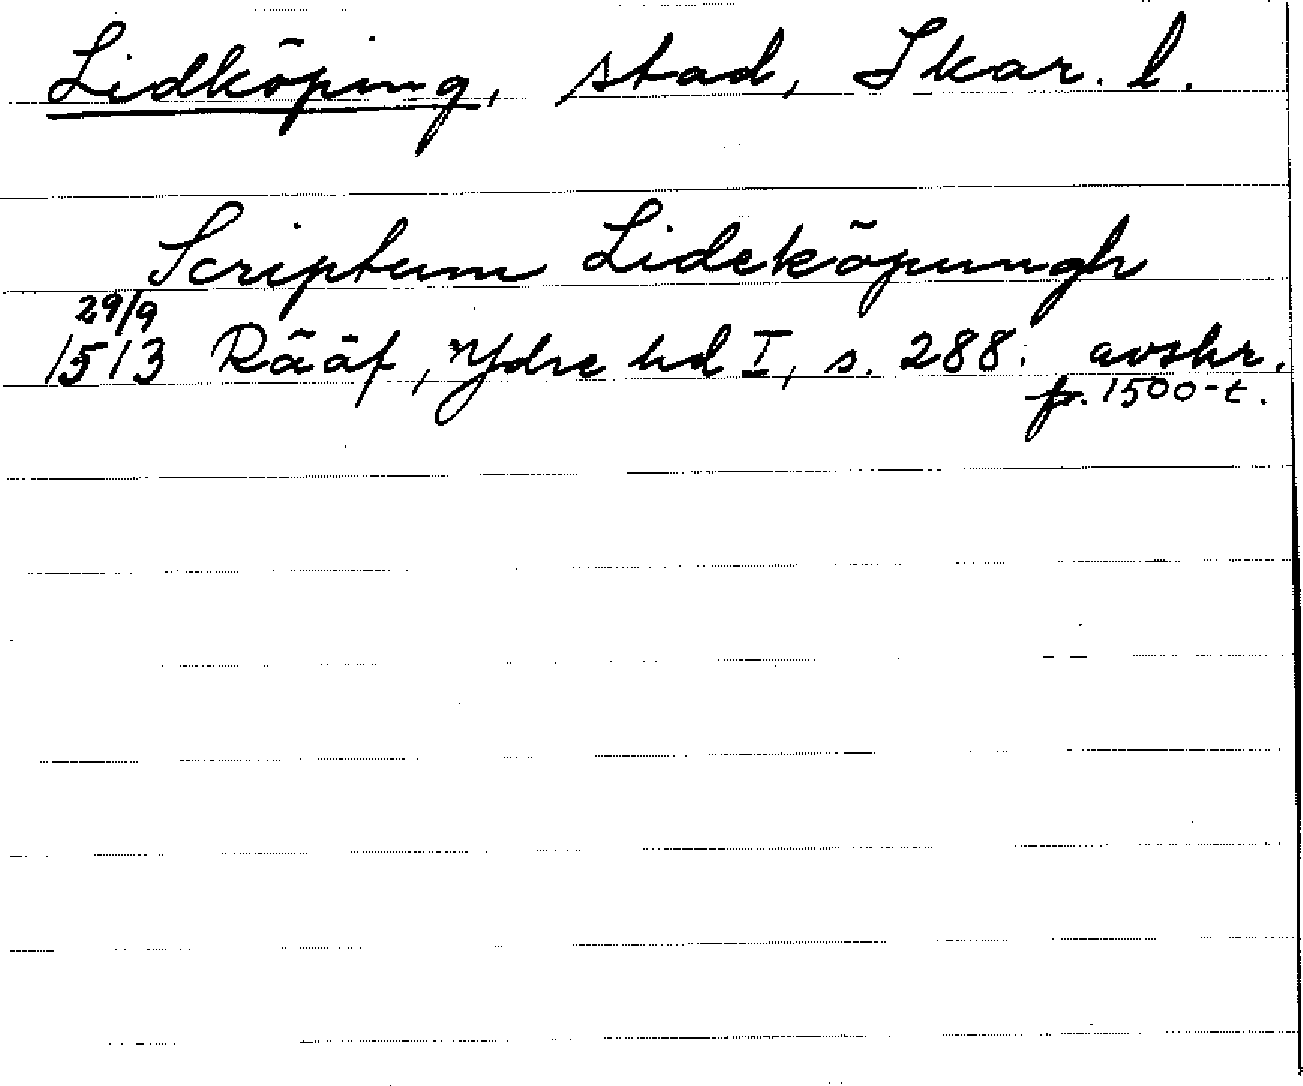 Lidköping, stad, Skar. l.
Scriptum Lideköpungh
29/9
1513 Rääf, Ydre hd I, s. 288. avskr.
fr. 1500-t.